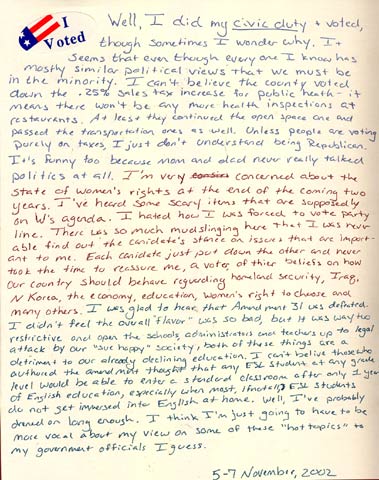 I
Voted
Well, I did my civic duty & voted,
though sometimes I wonder why. It
seems that even though every one I know has
mostly similar political views that we must be
in the minority. I can't believe the county voted
down the .25% sales tax increase for public heath - it
means there won't be any more health inspections at
restaurants. At least they continued the open space one and
passed the transportation ones as well. Unless people are voting
purely on taxes, I just don't understand being Republican.
It's funny too because mom and dad never really talked
politics at all. I'm very concerned about the
state of women's rights at the end of the coming two
years. I've heard some scary items that are supposedly
on W's agenda. I hated how I was forced to vote party
line. There was so much mudslinging here that I was never
able find out the canidate's stance on issues that are import-
ant to me. Each canidate just put down the other and never
took the time to reassure me, a voter of thier beliefs on how
our country should behave reguarding homeland security, Iraq,
N Korea, the economy, education, women's right to choose and
many others. I was glad to hear, that Amendment 31 was defeated.
I didn't feel the overall "flavor" was so bad, but it was way too
restrictive and open the schools, administrators and teachers up to legal
attack by our "sue happy" society, both of these things are a
detriment to our already declining education. I can't belive those who
authored the amendment thought that any ESL student at any grade
level would be able to enter a standard classroom after only 1 year
of English education, especially when most, (most all) ESL students
do not get immersed into English at home. Well, I've probably
droned on long enough. I think I'm just going to have to be
more vocal about my view on some of these "hot topics" to
my government officials I guess.
5-7 November, 2002